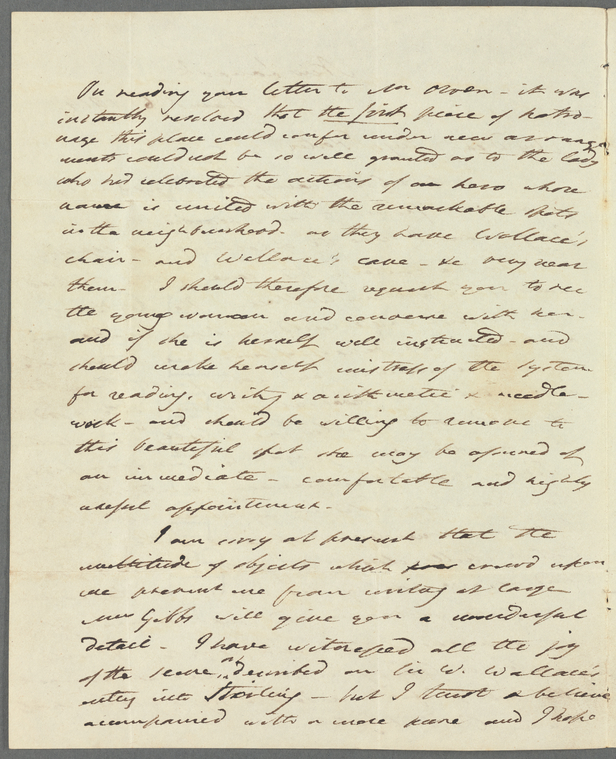 On reading your letter to Mr Owen - it was
instantly resolved that the first piece of patro-
nage this place could confer under new arrange
ments could not be so well granted as to the lady
who had celebrated the actions of an hero whose
name is united with the remarkable spots
in the neighbourhood - as they have Wallace's
chair - and Wallace's cave - &c very near
them. I should therefore request you to see
the young woman and converse with her -
and if she is herself well instructed - and
should make herself mistress of the system
for reading, writing & arithmetic & needle-
work - and should be willing to remove to
this beautiful spot she may be assured of
an immediate - comfortable and highly
useful appointment.
I am sorry at present that the
multitude of objects which crowd upon
me prevent me from writing at large
Mrs Gibbs will give you a wonderful
detail - I have witnessed all the joy
of the scene as described on Sir W. Wallace's
entry into Stirling - but I trust & believe
accompanied with a more pure and I hope